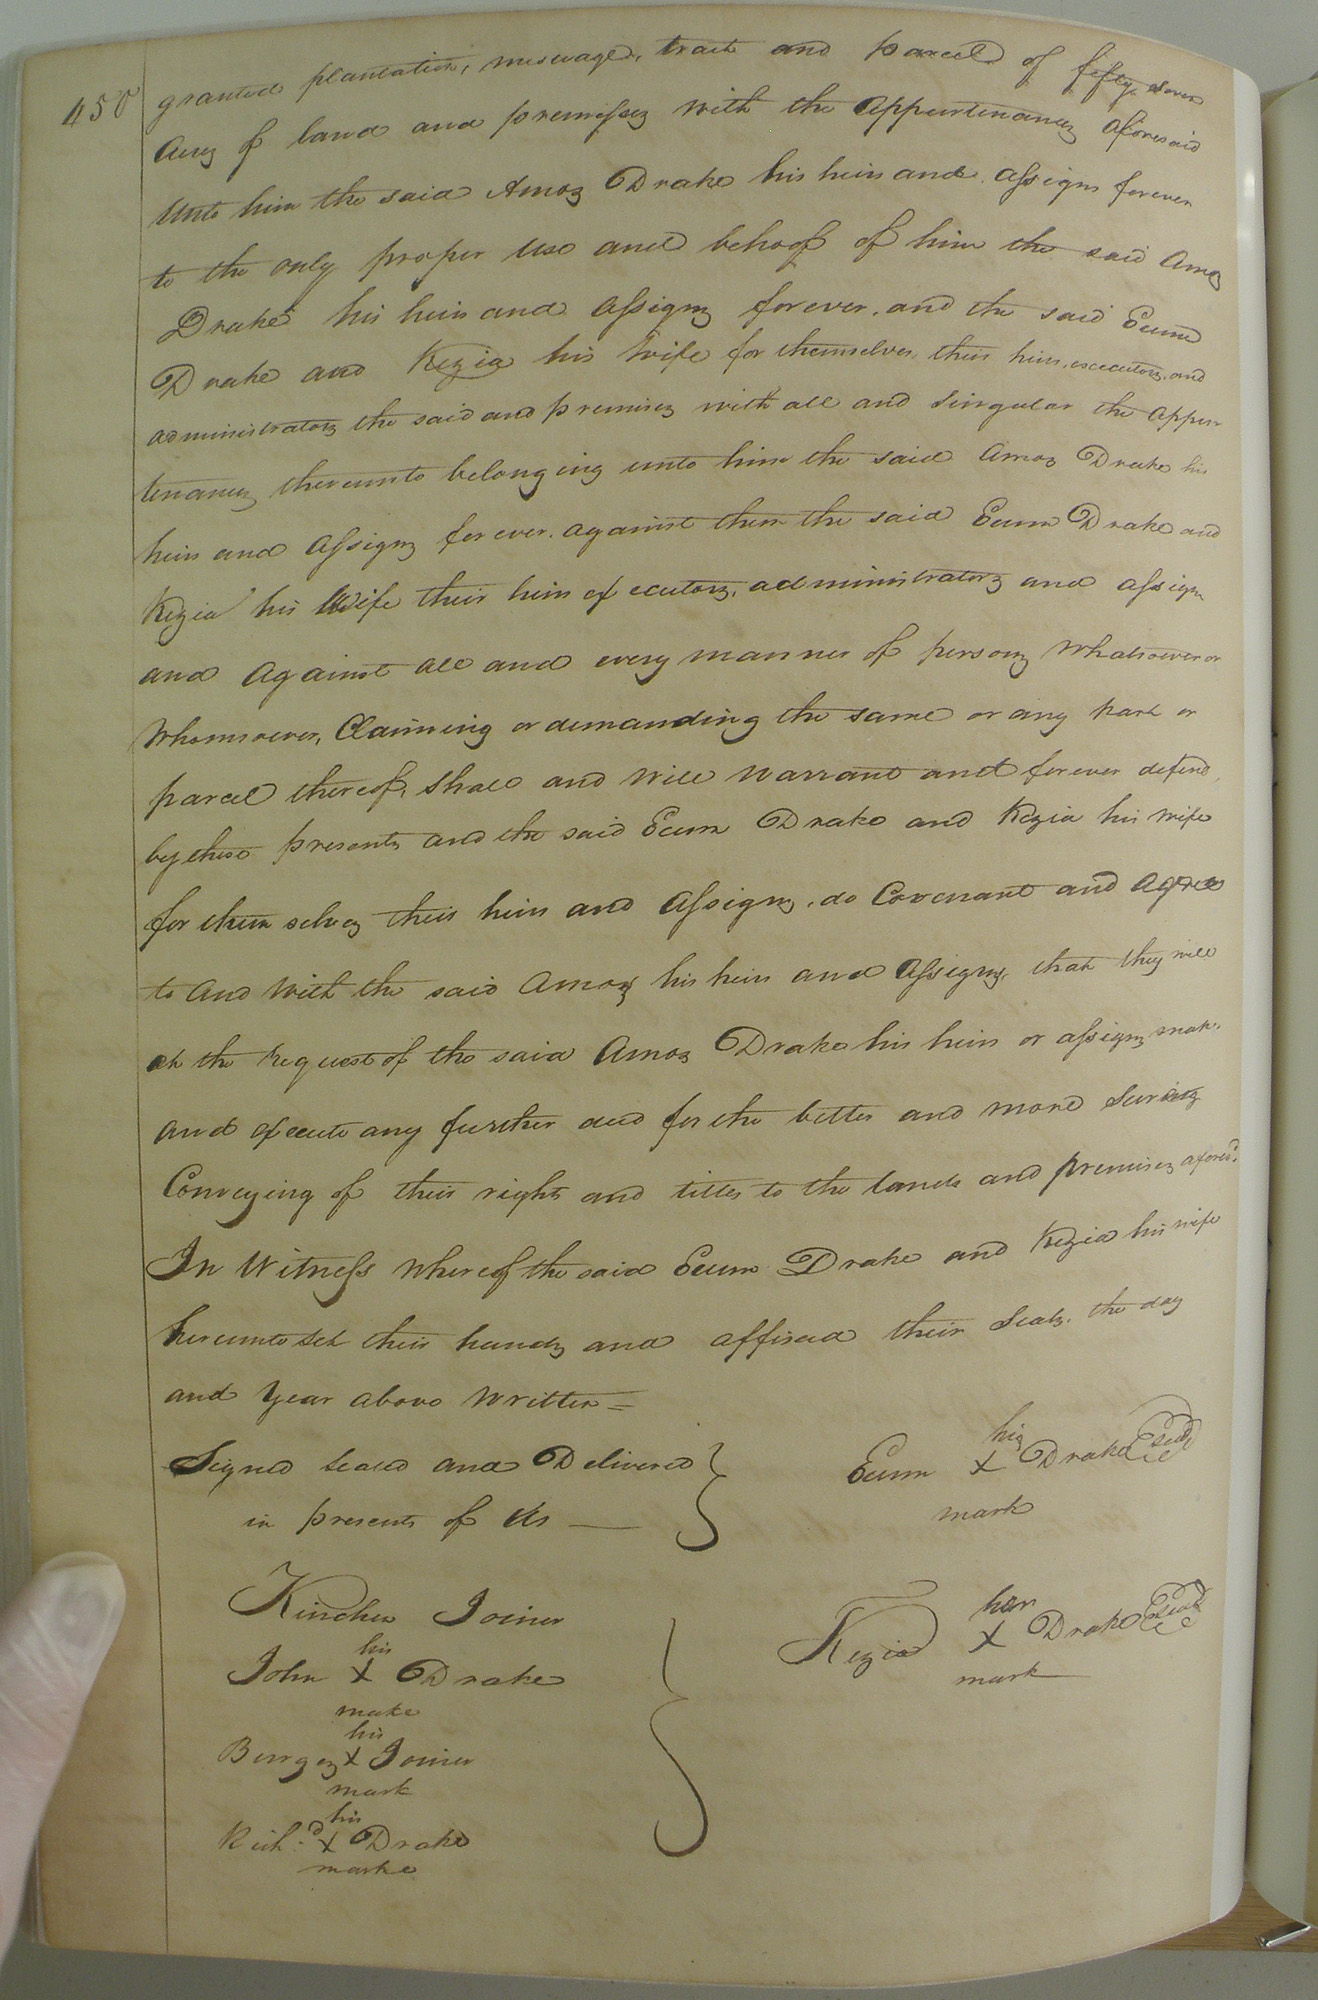 450
granted plantation, messuage, tract and parcel of fifty seven
Acres of land and premises with the Appurtenances aforesaid
Unto him the said Amos Drake his heirs and Assigns forever
to the only proper use and behoof of him the said Amos
Drake his heirs and Assigns forever. and the said Exum
Drake and Kezia his Wife for themselves, their heirs, executors, and
administrators the said and premises with all and Singular the appur
tenances thereunto belonging unto him the said Amos Drake his
heirs and Assigns forever. against them the said Exum Drake and
Kezia his Wife their heirs executors, administrators and assigns
and Against all and every manner of persons Whatsoever or
Whomsoever, Claiming or demanding the same or any part or
parcel thereof, Shall and will warrant and forever defend
by these presents and the said Exum Drake and Kezia his wife
for them selves their heirs and Assigns, do Covenant and agree
to and with the said Amos his heirs and Assigns, that they will
at the request of the said Amos Drake his heirs or assigns make
and execute any further deed for the better and more Surety
Conveying of their rights and titles to the lands and premises aforesd.
In Witness whereof the said Exum Drake and Kezia his wife
hereunto Set their hands and affixed their Seals. the day
and Year above Written =
Signed Sealed and Delivered
in presents of Us —
his
Exum X Drake Seal
mark
Kinchen Joiner
her
Kezia X Drake Seal
mark
his
John X Drake
make
his
Burges X Joiner
mark
his
Richd. X Drake
marke